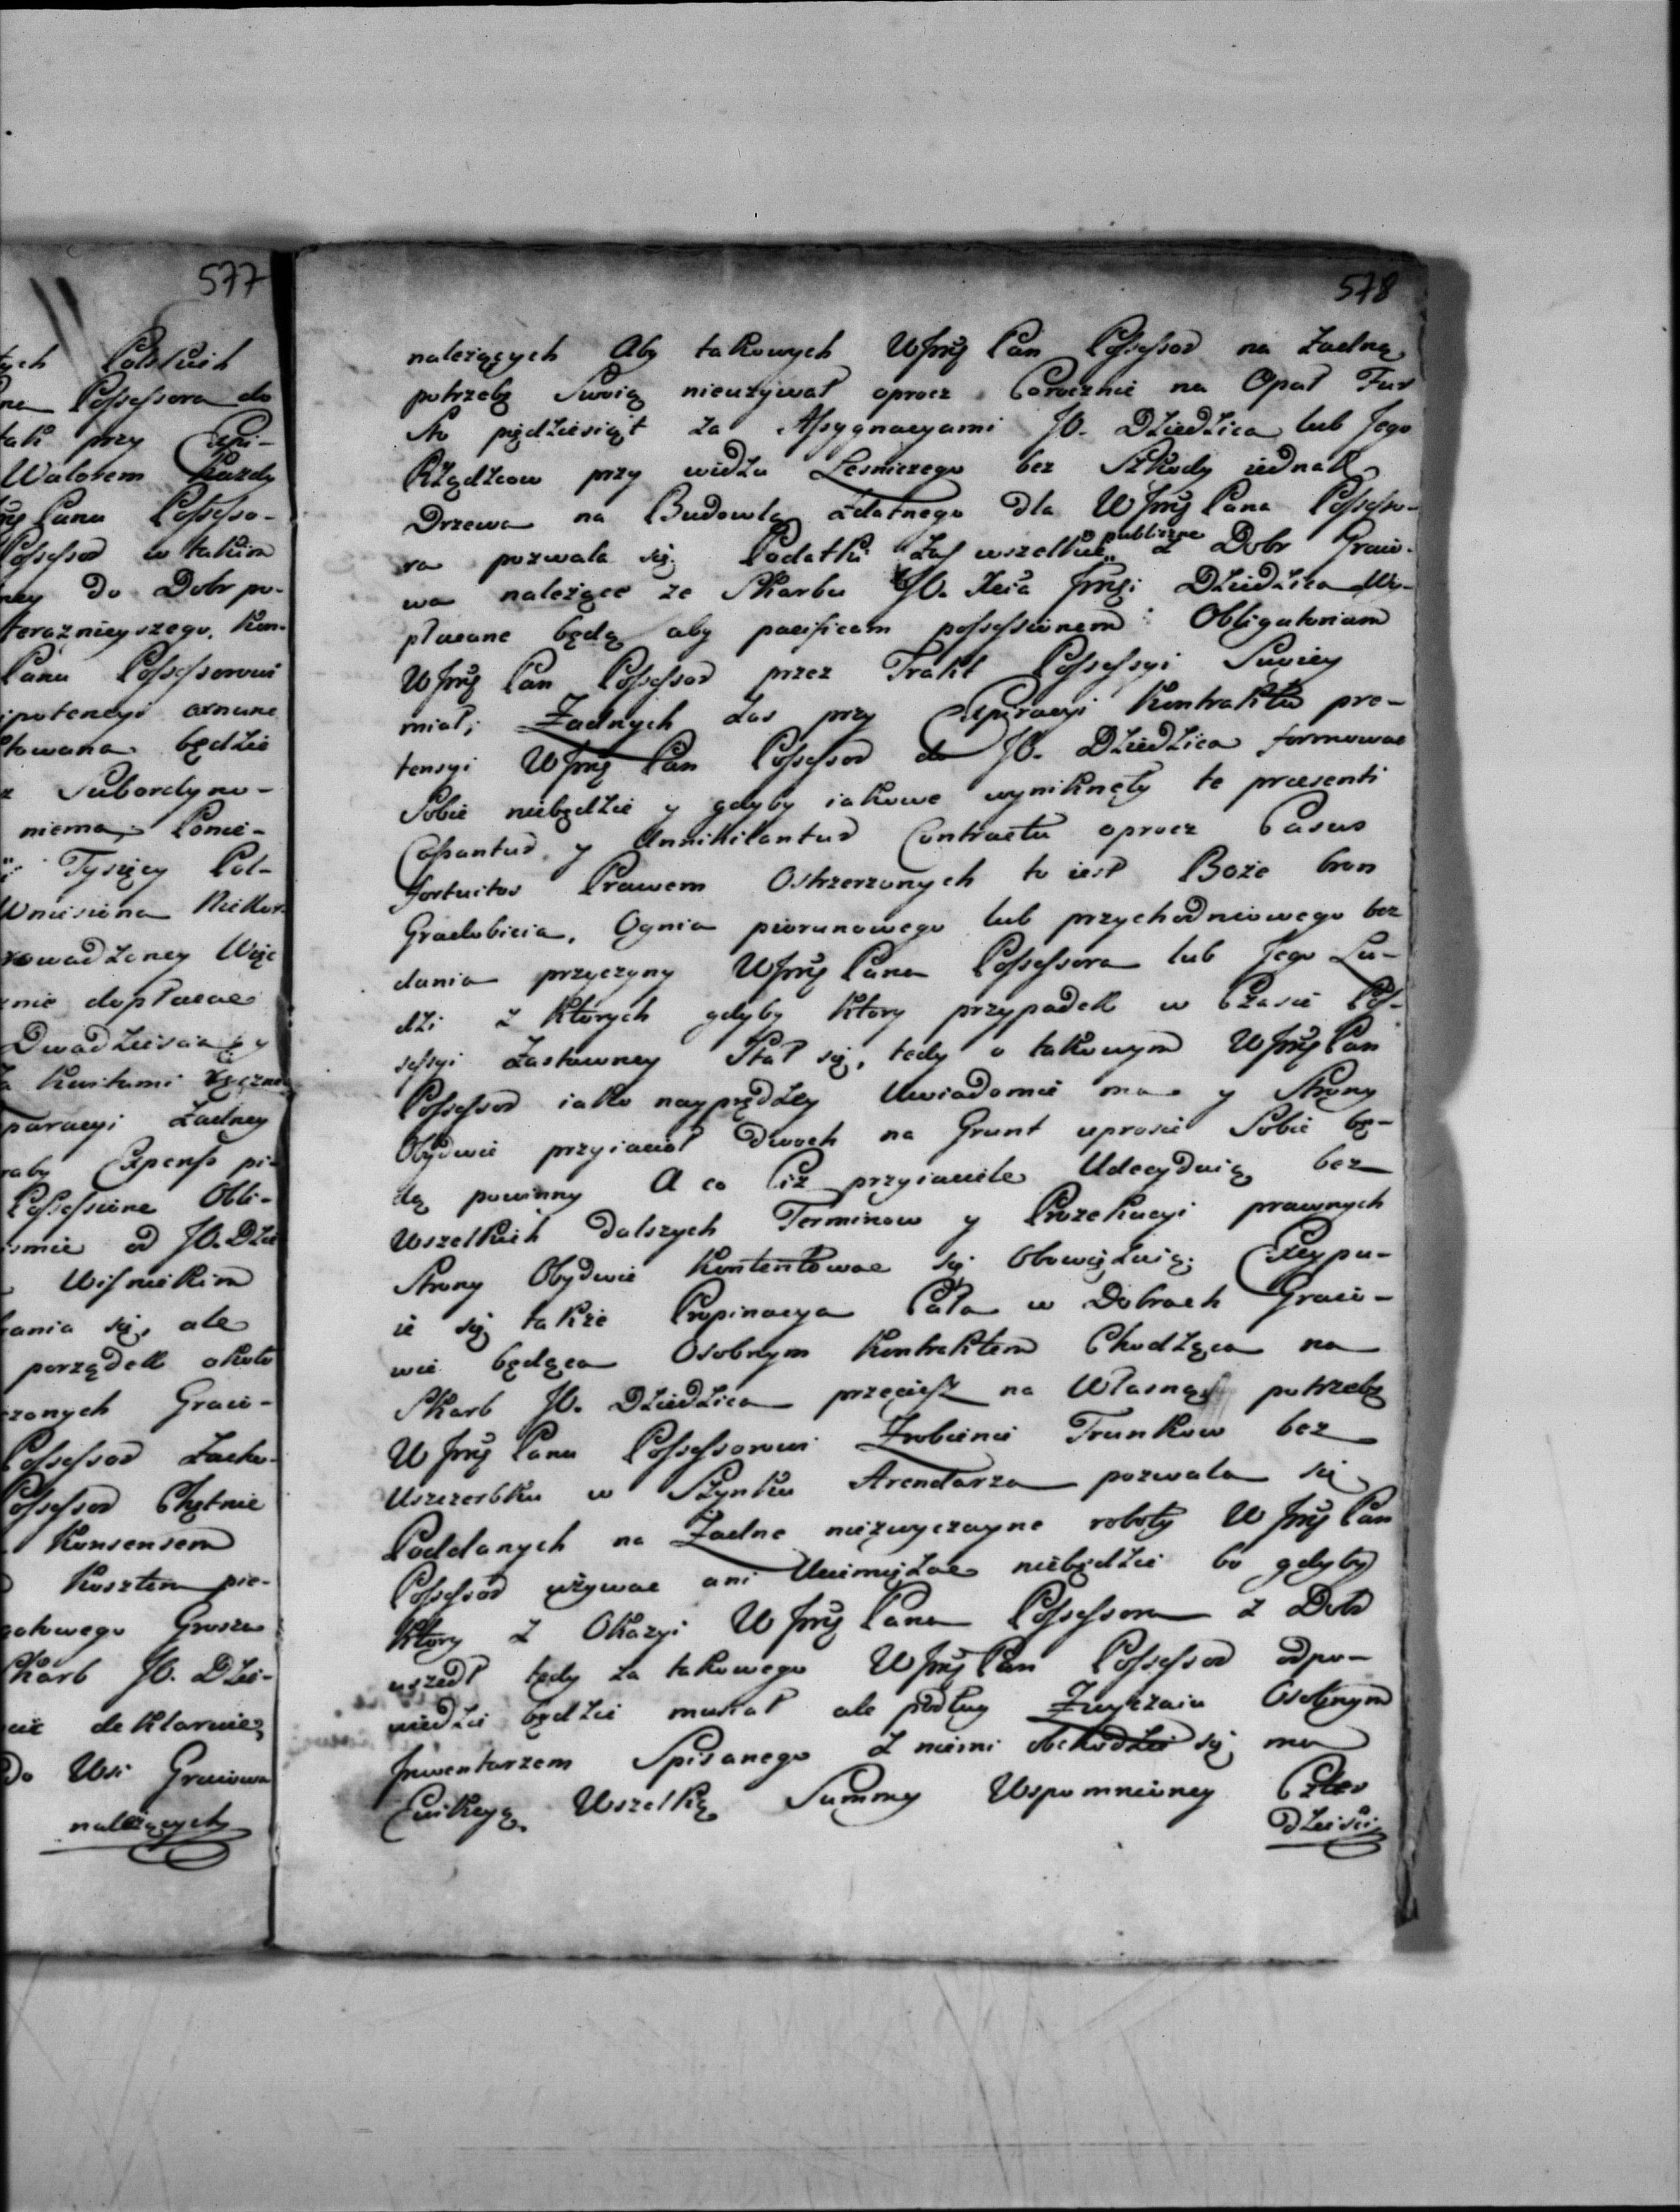 577
tych Polskich
na Possessora do
tak przy Expi-
Walorem każdy
Pana Possesso-
Possessor w takim
ney do Dobr po-
teraznieyszego, Kon-
Panu Possessorowi
ipotencyi oznane
towana będzie
Subordyno-
niema, Ponie-
Tysięcy Pol-
Wniesiona
rowadzoney Więc
znie dopłacać
Dwadziescia y
Kwitami ręczne
paracyi żadney
raby Expens pi-
Possessione Obli-
smie od JO. Dzie
Wisnickim
kania się, ale
porządek około
czonych Graio-
Possessor Zacho-
Possessor Chętnie
Konsensem
Kosztem pie-
gotowego Grosza
Skarb JO. Dzie-
cie deklaruie,
Do Wsi Graiowa
należących
578
należących Aby takowych WJmę Pan Possessor na żadną
potrzebę Swoią nieużywał oprocz Corocznie na Opał Fur
Sto piędziesiąt za Assygnacyami JO. Dziedzica lub Jego
Rządzcow przy widzu Lesniczego bez Szkody iednak
Drzewa na Budowlą zdatnego dla WJmę Pana Possesso-
ra pozwala się. Podatki zaś wszelkie publiczne z Dobr Graio-
wa należące ze Skarbu JO. Xcia Jmci Dziedzica Wy-
płacane będą aby pacificam possessionem Obligatoriam
WJmę Pan Possessor przez Trakt Possessyi Swoiey
miał; Żadnych zas przy Expiracyi Kontraktu pre-
tensyi WJmę Pan Possessor do JO. Dziedzica formować
Sobie niebędzie y gdyby iakowe wyniknęły te praesenti
Cassantur y Annihilantur Contractu oprocz Casus
fortuitos Prawem Ostrzerzonych to iest Boże bron
Gradobicia, Ognia piorunowego lub przychodniowego bez
dania przyczyny WJmę Pana Possessora lub Jego Lu-
dzi z których gdyby który przypadek w Czasie Pos-
sessyi Zastawney Stał się, tedy o takowym WJmę Pan
Possessor iako nayprędzey Uwiadomić ma y Strony
Obydwie przyiacioł dwoch na Grunt uprosić Sobie bę-
dą powinny A co Ciż przyiaciele Udecyduią bez
Wszelkich dalszych Terminow y Prozekucyi prawnych
Strony Obydwie kontentować się Obowięzuią; Excypu-
ie się także Propinacya Cała w Dobrach Graio-
wie będąca Osobnym Kontraktem Chodząca na
Skarb JO. Dziedzica przecięż na Własną potrzebę
WJmę Panu Possessorowi Zrobienie Trunkow bez
Uszczerbku w Szynku Arendarza pozwala się
Poddanych na Żadne niezwyczayne roboty WJmę Pan
Possessor używać ani Uciemiężać niebędzie bo gdyby
który z Okazyi WJmę Pana Possessora z Dobr
uszedł tedy za takowego WJmę Pan Possessor odpo-
wiedzić będzie musiał ale podług Zwyczaiu Osobnym
Jnwentarzem Spisanego z niemi obchodzić się ma
Ewikcyą Wszelką Summy Wspomnioney Czter
dziesci